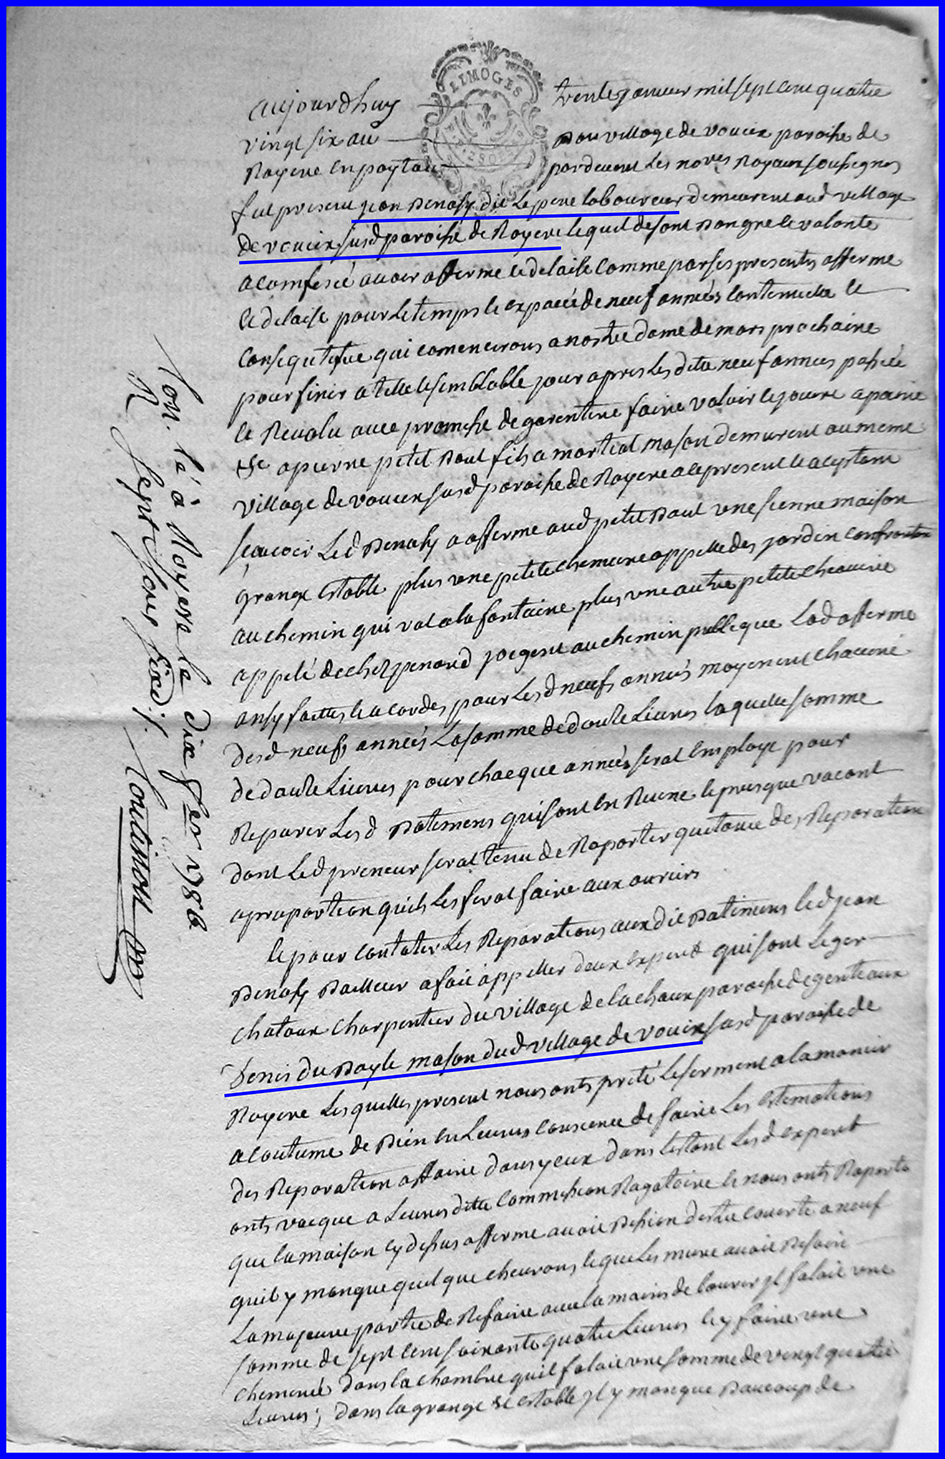 LIMOGES
aujourdhuy trente janvier mil sept cent quatre
vingt six au bour village de voueix paroiche de
Royere en poytou par devent les nores Royaux sousegnes
fut present jean Benassy dit le pere laboureur demeurent aud village
de voueix susd paroiche de Royere lequel de sont bon gre le volonte
a comfesé avoir afferme le delaise comme par ses presentes afferme
le delaise pour le temps le expace de neuf années contenuela le
consequtifve qui comencerons a nostre dame de mars prochaine
pour finir a telle le semblable jour apres les ditte neuf annees passée
le Revolu avec promese de garentire faire valoir le jouire a paine
&c a pierre petit Baut fils a martial mason demurent au meme
village de voueix susd paroiche de Royere a ce present le aceptent
seavoir Led Benassy a afferme aud petit Baut une sienne maison
grange estable plus une petite cheneviere appelle des jardin confrontan
au chemin qui vat a la fontaine plus une autre petite
appelé de chez penaud joegent au chemin publeque Lad afferme
ansy faitte le acordes pour Lesd neufs annés moyenent chacune
desd neufs annés La somme de douze Livres laquelle somme
de douze Livres pour chaeque année serat employe pour
Reparer Lesd Batimens qui sont en Ruine le presque vacant
dont Led preneur serat tenu de Raporter quitance des Reparation
a praportion quils Les ferat faire aux ouvriers
le pour contater Les Reparations aux dit Batimens led jean
Benassy Bailleur a fait appeller deux expert qui sont Leger
chataux charpentier du village de la chaux paroiche de genteaux
Denis du Bayle mason dud village de voueix susd paroiche de
Royere Lesquelles present nous onts preté le serment a la maniere
acoutume de Bien en Leurs consience de faire Les estemations
des Reparation affaire dans yceux dans lestant Lesd expert
onts vacque a Leurs ditte commission Ragatoire le nous onts Raporte
que la maison cy desus afferme avoit Besien destre couverte a neuf
quil y manque quel que chevrons le que les murs avoit Besoin
La majeure partie de Refaire avec la mains de louvrier jl falait une
somme de sept cens soixante quatre Livres le y faire une
chemené dans la chambre quil falait une somme de vingt quatre
Livres; dans la grange & lestable jl y manque Baucoup de
Con. la à Royere le dix fer 1786
R sept sous six d:/.